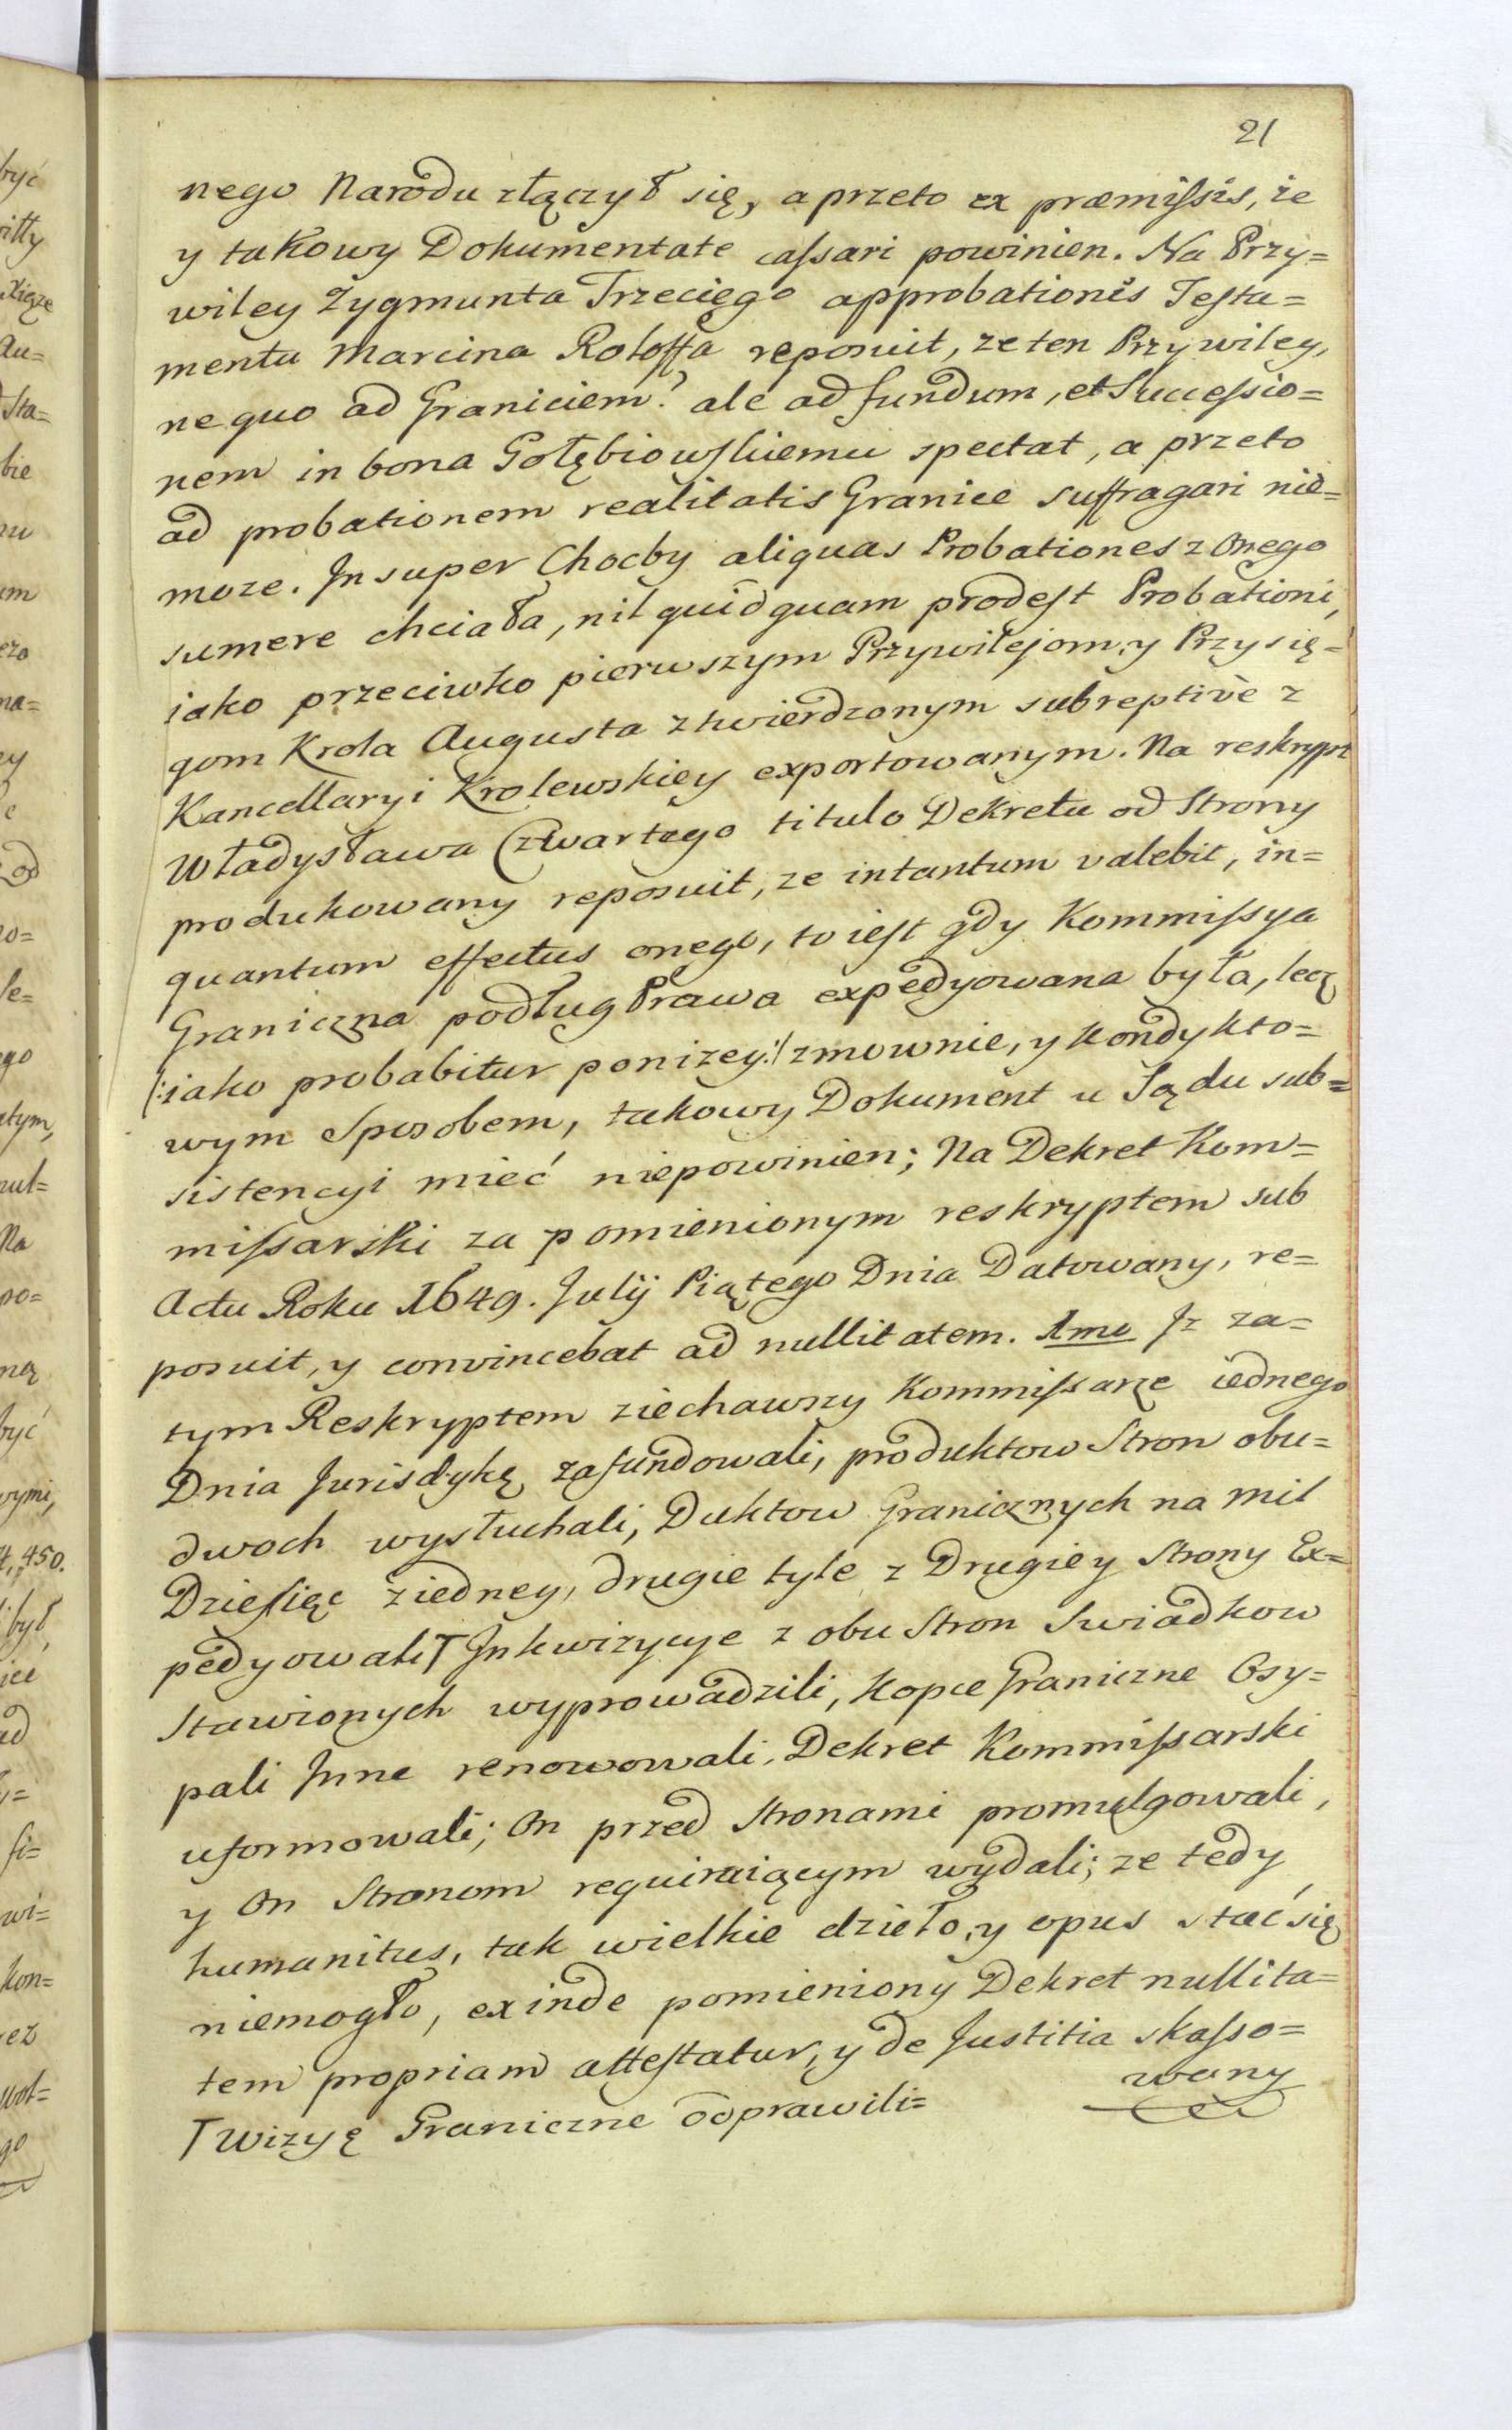 21
nego Narodu złączył się, a przeto ex præmissis, że
y takowy Dokumentate cassari powinien. Na Przy=
wiley Zygmunta Trzeciego approbationis Testa=
mentu Marcina Roloffa reposuit, ze ten Przywiley,
ne quo ad Graniciem? ale ad fundum, et Successio=
nem in bona Gołębiowskiemu spectat, a przeto
ad probationem realitatis Granice suffragari nie=
moze. Insuper Chocby aliquas Probationes z onego
sumere chciała, nil quidquam prodest Probationi,
iako przeciwko pierwszym Przywilejom, y Przysię=
gom Krola Augusta ztwierdzonym subreptivè z
Kancellaryi Krolewskiey exportowanym. Na reskrypt
Władysława Czwartego titulo Dekretu od Strony
produkowany reposuit, ze intantum valebit, in=
quantum effectus onego, to iest gdy Kommissya
Graniczna podług Prawa expedyowana była, lecz
/:iako probabitur ponizey:/ zmownie, y kondykto=
wym Sposobem, takowy Dokument u Sądu sub=
sistencyi mieć niepowinien; Na Dekret Kom=
missarski za pomienionym reskryptem sub
Actu Roku 1649. Julij Piątego Dnia Datowany, re=
posuit, y convincebat ad nullitatem. 1mo Jz za=
tym Reskryptem ziechawszy Kommissarze iednego
Dnia Jurisdykę zafundowali, produktow Stron obu=
dwoch wysłuchali, Duktow Granicznych na mil
Dziesięć ziedney, drugie tyle z Drugiey Strony Ex=
pedyowali T Inkwizycye z obu Stron Swiadkow
Stawionych wyprowadzili, Kopce Graniczne Osy=
pali Jnne renowowali, Dekret Kommissarski
uformowali; On przed Stronami promulgowali,
y On Stronom requiruiącym wydali; ze tedy
humanitus, tak wielkie dzieło, y opus stać się
niemogło, exinde pomieniony Dekret nullita=
tem propriam attestatur, y de Justitia skasso=
wany
T Wizyę Graniczne odprawili=